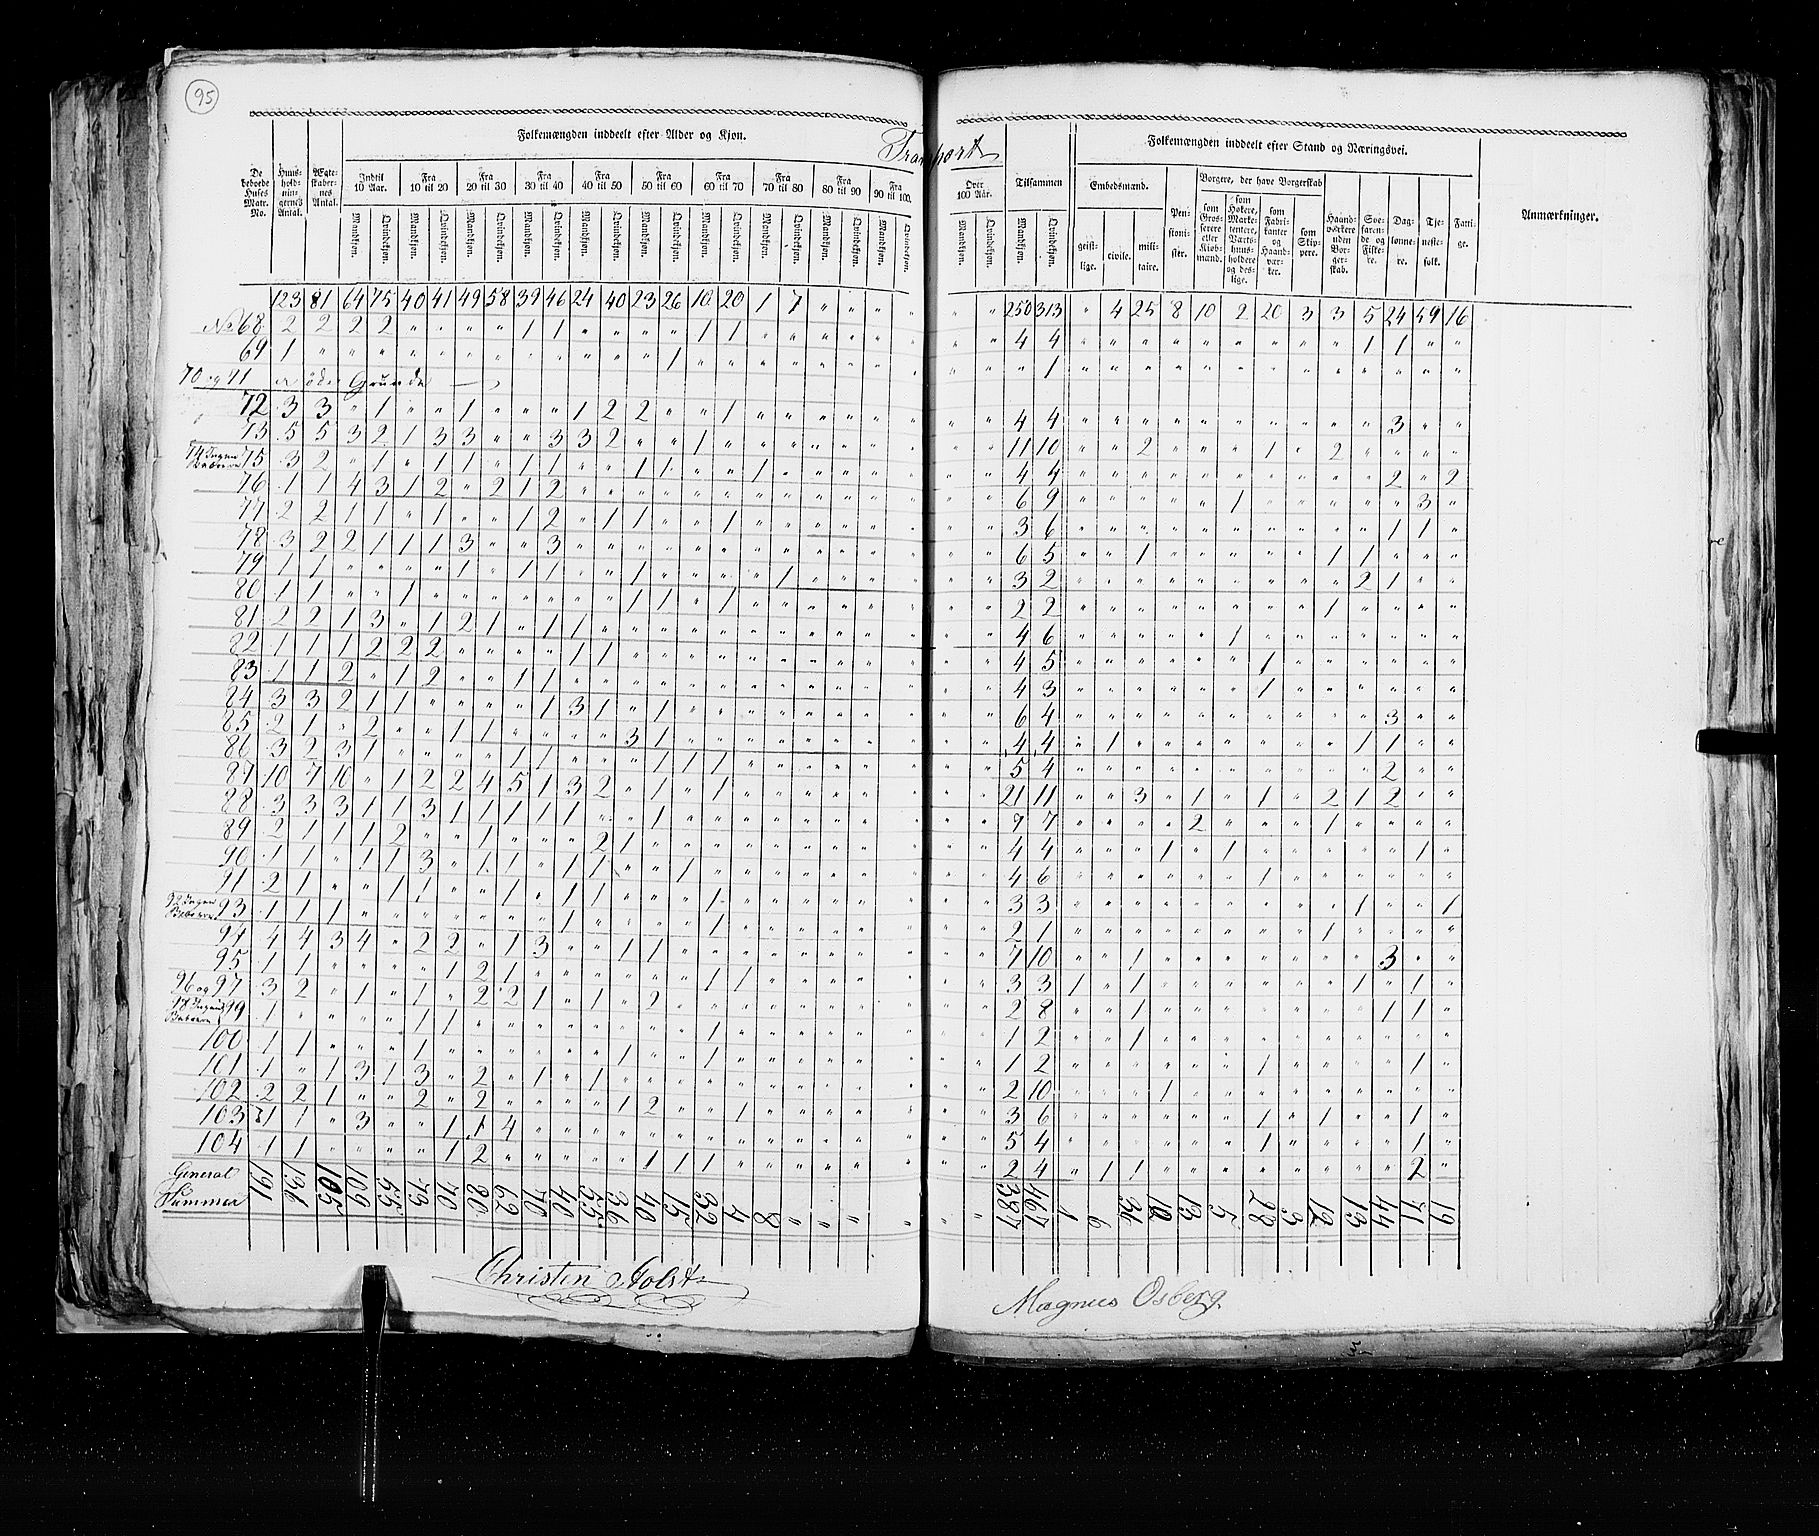 95
Folkemængden inddeelt efter Alder og Kjøn.
Transport
Folkemængden inddeelt efter Stand og Næringsvei.
De beboede Huses Matr. No.
Huus- hold- nin- gernes Antal.
Ægte- skaber- nes Antal.
Indtil 10 Aar.
Fra 10 til 20
Fra 20 til 30
Fra 30 til 40
Fra 40 til 50
Fra 50 til 60
Fra 60 til 70
Fra 70 til 80
Fra 80 til 90
Fra 90 til 100.
Over 100 Aar.
Tilsammen
Embedsmænd.
Borgere, der have Borgerskab
Mandkjøn. Qvindekjøn.
geist- lige.
civile.
mili- taire.
Pen- sioni- ster.
som Gros- serere eller Kjøb- mænd.
som Høkere, Marke- tentere, Værts- huus- holdere og des- lige.
som Fabri- kanter og Haand- vær- ker.
som Skip- pere.
Haand- værkere uden Bor- ger- skab.
Søe- farende og Fiske- re.
Dag- lønne- re.
Tje- neste- folk.
Fatti- ge.
Anmærkninger.
123 81 64 75 40 41 49 58 39 46 24 40 23 26 10 20 1 7 " " " " " " 250 313 " 4 25 8 10 2 20 3 3 5 24 59 16
No 68 2 2 2 2 " " " " 1 1 " " " " 1 1 " " 4 4 1 1
69 1 " " " " " " " " " " " " 1 " " 1
70 og 71 er øde Grunde
72 3 3 " 1 " " 1 " " " 1 2 2 " " 1 4 4 3
73 5 5 3 2 1 3 3 " " 3 3 2 " " 1 11 10 2 1 2
74 Ingen Beboere 75 3 2 " 1 " 1 1 " 1 1 " " 1 1 " " 1 4 4 2 " 2
76 1 1 4 3 1 2 " 2 1 2 6 9 1 3
77 2 2 1 1 " 1 " " 1 2 " 1 1 " " 1 3 6 1 1
78 3 2 2 1 1 1 3 " " 3 6 5 1 1 1
79 1 1 " " " " 1 " 1 1 " " 1 " " " " 1 3 2 2 1
80 1 1 " " 1 " " " " " " " 1 1 " 1 2 2 1
81 2 2 1 3 " 1 2 1 " 1 1 4 6 1
82 1 1 1 2 2 2 " " " " 1 1 4 5 1
83 1 1 2 " 1 2 " " 1 1 4 3 1
84 3 3 2 1 1 " " " " 1 3 1 " 1 6 4 3
85 2 1 " 2 " " 1 1 " " " " 3 1 4 4 1 1 1
86 3 2 3 1 " " " " 1 1 " " " 1 1 1 5 4 2
87 10 7 10 " 1 2 2 4 5 1 3 2 " 1 " 1 21 11 3 1 1 2 1 2
88 3 3 3 1 1 3 1 1 1 1 1 " " 1 9 7 2 1
89 2 1 1 1 2 " " 1 " " " 2 1 4 4 1 1 1
90 1 1 " 1 1 3 " 1 1 " 1 1 " " 1 4 6 1
91 2 1 " " 1 1 " " 1 " 1 1 " " " 1 3 3 1 1
92 Ingen Beboere 93 1 1 1 " " " " " " " 1 " " " " 1 2 1 1
94 4 4 3 4 " 2 2 " 1 3 " " 1 1 7 10 1 3
95 1 1 " " " " 1 2 1 " " " " " 1 1 3 3 1 1 1 1
96 og 97 3 2 " 1 " 1 " 2 2 1 " 1 " 2 2 8 1 1
98 Ingen Beboere 99 1 " " " " 1 1 " " " " " " " " 1 1 2 1
100 1 1 " " " 1 " " " " " " 1 " " 1 1 2 1 1
101 1 " 1 3 1 3 " 2 " 1 " 1 2 10 1
102 2 2 1 " " 2 " 2 " " " " 1 2 " " 1 3 6 1 1 1
103 1 1 " 3 " " 1 1 4 5 4 1 " 1
104 1 1 " " " " 1 2 " " " " 1 1 1 2 4 " 1 1 2
General Summer 191 136 105 109 55 73 70 80 62 70 40 55 36 40 15 32 4 8 " " " " " " 387 467 1 6 36 10 13 5 28 3 12 13 44 71 19
Christen Holst
Magnus Osberg.